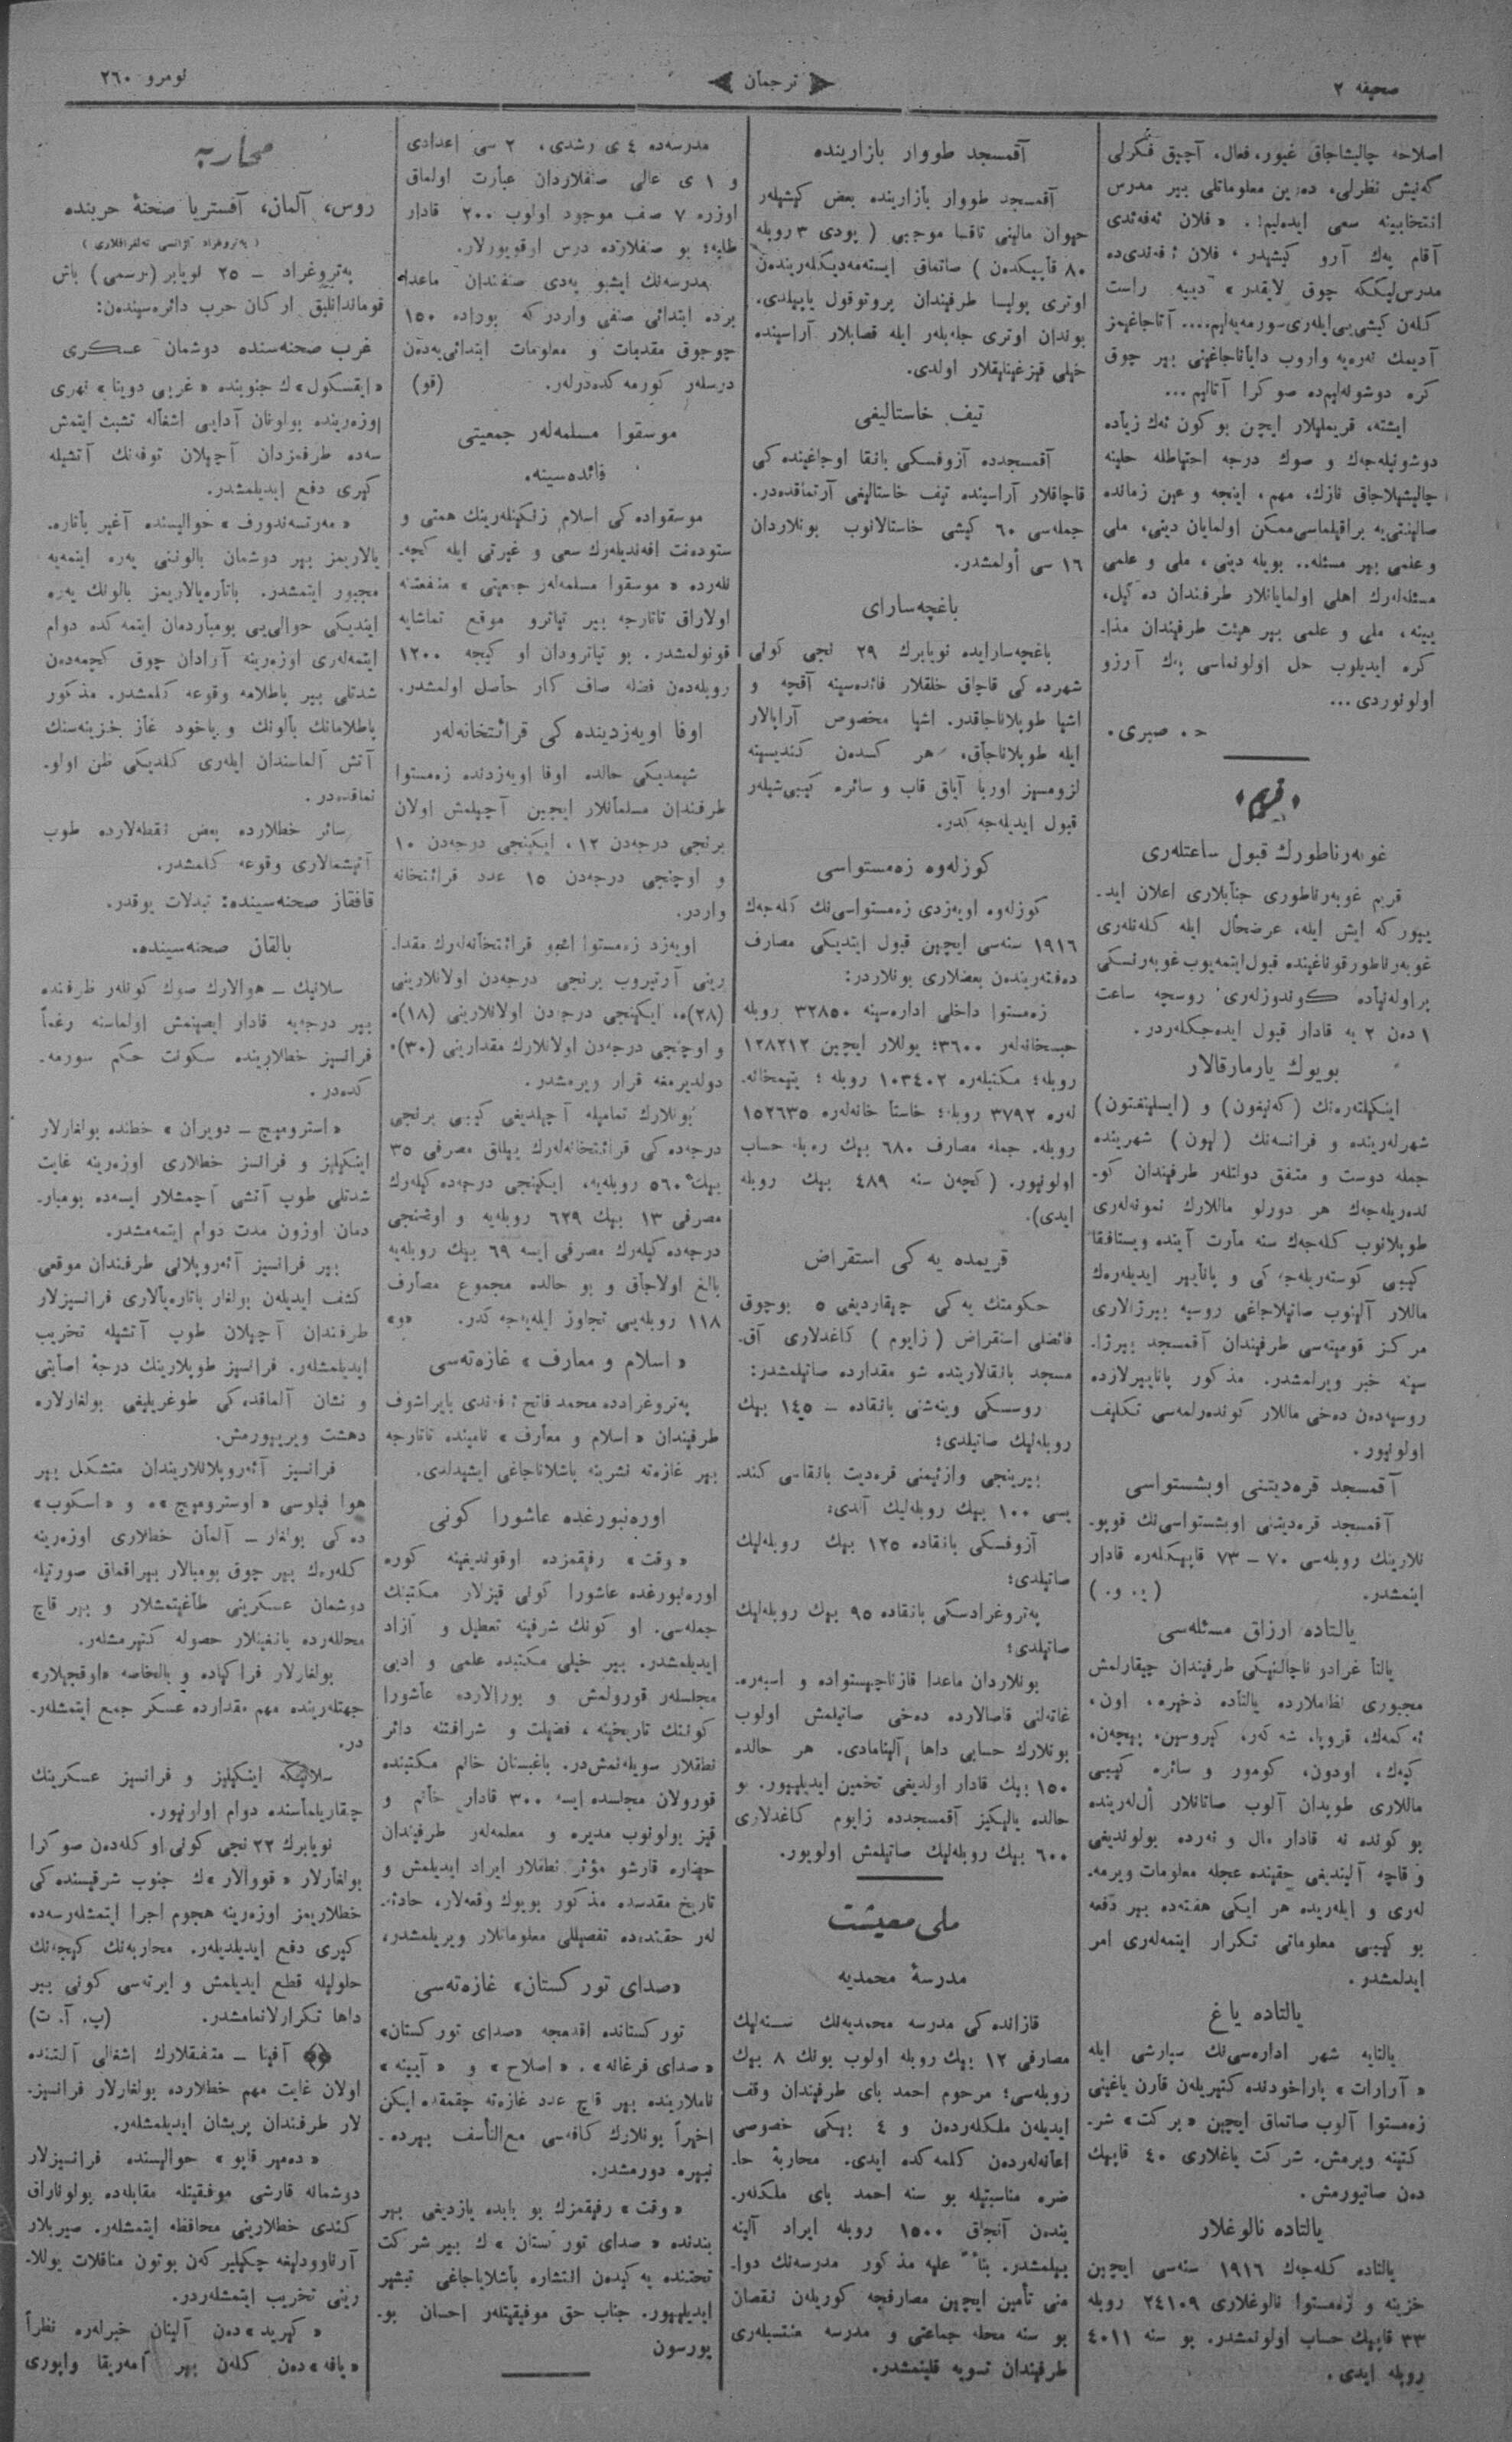 صحیفه ۲
ترجمان
نومرو ۲٦۰
اصلاحه چالیشاجاق غیور، فعال، آچیق فکرلی
گه‌نیش نظرلی، ده‌رین معلوماتلی بیر مدرس
انتخابینه سعی ایده‌لیم!. «فلان ئه‌فه‌ندی
آقام یه‌ك آرو کیشیدر، فلان ئه‌فه‌ندی‌ده
مدرس‌لیککه چوق لایقدر» دییه راست
کله‌ن کیشی‌یی‌ایله‌ری‌سورمه‌یه‌لیم.... آتاجاغیمز
آدیمك نه‌ره‌یه واروب دایاناجاغینی بیر چوق
کره دوشونه‌لیم‌ده صوکرا آتالیم...
ایشته، قریملیلار ایچن بو کون ئه‌ك زیاده
دوشونیله‌جه‌ك و صوك درجه احتیاطله حلینه
چالیشیلاجاق نازك، مهم، اینجه و عین زمانده
صالینتی‌یه براقیلماسی‌ممکن اولمایان دینی، ملی
و علمی بیر مسئله.. بویله دینی، ملی و علمی
مسئله‌لرك اهلی اولمایانلار طرفندان ده‌گیل،
یینه، ملی و علمی بیر هیئت طرفیندان مذا-
کره ایدیلوب حل اولونماسی یه‌ك آرزو
اولونوردی...
ح. صبری.
قریم
غوبه‌رناطورك قبول ساعتله‌ری
قریم غوبه‌رناطوری جنابلاری اعلان اید-
ییور که ایش ایله، عرضحال ایله کله‌نله‌ری
غوبه‌رناطورقوناغینده قبول‌ایتمه‌یوب غوبه‌رنسکی
پراوله‌نیاده کوندوزله‌ری روسجه ساعت
۱ ده‌ن ۲ یه قادار قبول ایده‌جکله‌ردر.
بویوك یارمارقالار
اینکیلته‌ره‌نك (که‌نیغون) و (ایسلینغتون)
شهرله‌رینده و فرانسه‌نك (لیون) شهرینده
جمله دوست و متفق دولتلر طرفیندان کو-
نده‌ریله‌جه‌ك هر دورلو ماللارك نمونه‌له‌ری
طوپلانوب کله‌جه‌ك سنه مارت آینده ویستافقا
کیبی کوسته‌ریله‌جه‌کی و یانایبر ایدیله‌ره‌ك
ماللار آلینوب صاتیلاجاغی روسیه بیرژالاری
مرکز قومیته‌سی طرفیندان آقمسجد بیرژا-
سینه خبر ویرلمشدر. مذکور یانایبرلارده
روسیه‌ده‌ن ده‌خی ماللار کونده‌رلمه‌سی تکلیف
اولونیور.
آقمسجد قره‌دیتنی اوبشستواسی
آقمسجد قره‌دیتنی اوبشستواسی‌نك قوپو-
نلارینك روبله‌سی ۷۰ – ۷۳ قاپیکله‌ره قادار
اینمشدر. (ی. و.)
یالتاده ارزاق مسئله‌سی
یالتا غرادو ناچالنیکی طرفیندان چیقارلمش
مجبوری نظاملارده یالتاده ذخیره، اون،
ئه‌کمه‌ك، قروپا، شه‌که‌ر، کیروسین، پیچه‌ن،
کپه‌ك، اودون، کومور و سائره کیبی
ماللاری طوپدان آلوب صاتانلار ألله‌رینده
بو کونده نه قادار مال و نه‌رده بولوندیغی
و قاچه آلیندیغی حقینده عجله معلومات ویرمه-
له‌ری و ایله‌ریده هر ایکی هفته‌ده بیر دفعه
بو کیبی معلوماتی تکرار ایتمه‌له‌ری امر
ایدلمشدر.
یالتاده یاغ
یالتایه شهر اداره‌سی‌نك سپارشی ایله
«آرارات» پاراخودنده کتیریله‌ن قارن یاغینی
زه‌مستوا آلوب صاتماق ایچین «برکت» شر-
کتینه ویرمش. شرکت یاغلاری ٤۰ قاپیك
ده‌ن صاتیورمش.
یالتاده نالوغلار
یالتاده کله‌جه‌ك ۱۹۱٦ سنه‌سی ایچین
خزینه و زه‌مستوا نالوغلاری ۲٤۱۰۹ روبله
۳۳ قاپیك حساب اولونمشدر. بو سنه ٤۰۱۱
روبله ایدی.
آقمسجد طووار بازارینده
آقمسجد طووار بازارینده بعض کیشیلەر
حیوان مالینی تاقسا موجبی (پودی ۳ روبله
۸۰ قاپیکدەن) صاتماق ایسته‌مه‌دیکله‌رینده‌ن
اوتری پولیسا طرفیندان پروتوقول یاپیلدی.
بوندان اوتری جله‌پله‌ر ایله قصابلار آراسینده
خیلی قیزغینلیقلار اولدی.
تیف خاستالیغی
آقمسجدده آزوفسکی بانقا اوجاغینده کی
قاچاقلار آراسینده تیف خاستالیغی آرتماقده‌در.
جمله‌سی ٦۰ کیشی خاستالانوب بونلاردان
۱٦ سی أولمشدر.
باغچه‌سارای
باغچه‌سارایده نویابرك ۲۹ نجی کونی
شهرده کی قاچاق خلقلار فائده‌سینه آقچه و
اشیا طوپلاناجاقدر. اشیا مخصوص آرابالار
ایله طوپلاناجاق، هر کسدەن کندیسینه
لزومسیز اوربا آیاق قاب و سائره کیبی‌شیلەر
قبول ایدیله‌جه‌كدر.
کوزله‌وه زه‌مستواسی
کوزله‌وه اویه‌زدی زه‌مستواسی‌نك کله‌جه‌ك
۱۹۱٦ سنه‌سی ایچین قبول ایتدیکی مصارف
ده‌فته‌رینده‌ن بعضلاری بونلاردر:
زه‌مستوا داخلی اداره‌سینه ۳۲۸٥۰ روبله
حبسخانه‌له‌ر ۳٦۰۰؛ یوللار ایچین ۱۲۸۲۱۲
روبله؛ مکتبله‌ره ۱۰۳٤۰۲ روبله؛ یتیمخانه-
له‌ره ۳۷۹۲ روبله؛ خاستا خانه‌له‌ره ۱٥۲٦۳٥
روبله. جمله مصارف ٦۸۰ بیك روبله حساب
اولونیور. (کچه‌ن سنه ٤۸۹ بیك روبله
ایدی).
قریمده یه‌کی استقراض
حکومتك یه‌کی چیقاردیغی ٥ بوچوق
فائضلی استقراض (زایوم) کاغدلاری آق-
مسجد بانقالارینده شو مقدارده صاتیلمشدر:
روسسکی وینه‌شنی بانقاده – ۱٤٥ بیك
روبله‌لیك صاتیلدی؛
بیرینجی وازئیمنی قره‌دیت بانقاسی کند-
یسی ۱۰۰ بیك روبله‌لیك آلدی؛
آزوفسکی بانقاده ۱۲٥ بیك روبله‌لیك
صاتیلدی؛
په‌تروغرادسکی بانقاده ۹٥ بیك روبله‌لیك
صاتیلدی؛
بونلاردان ماعدا قازناچیستواده و اسبه‌ره-
غاته‌لنی قاصالارده ده‌خی صاتیلمش اولوب
بونلارك حسابی داها آلینامادی. هر حالده
۱٥۰ بیك قادار اولدیغی تخمین ایدیلییور. بو
حالده یالیکیز آقمسجدده زایوم کاغدلاری
٦۰۰ بیك روبله‌لیك صاتیلمش اولویور.
ملی معیشت
مدرسهٔ محمدیه
قازانده کی مدرسه محمدیه‌نك سنه‌لیك
مصارفی ۱۲ بیك روبله اولوب بونك ۸ بیك
روبله‌سی؛ مرحوم احمد بای طرفیندان وقف
ایدیله‌ن ملکله‌رده‌ن و ٤ بیکی خصوصی
اعانه‌له‌ردەن کلمه‌کده ایدی. محاربهٔ حا-
ضره مناسبتیله بو سنه احمد بای ملکله‌ر-
ینده‌ن آنجاق ۱٥۰۰ روبله ایراد آلینه
بیلمشدر. بناءً علیه مذکور مدرسه‌نك دوا-
منی تأمین ایچین مصارفچه کوریله‌ن نقصان
بو سنه محله جماعتی و مدرسه منتسبله‌ری
طرفیندان تسویه قلینمشدر.
مدرسه‌ده ٤ ی رشدی، ۲ سی اعدادی
و ۱ ی عالی صنفلاردان عبارت اولماق
اوزره ۷ صنف موجود اولوب ۲۰۰ قادار
طلبه؛ بو صنفلارده درس اوقویورلار.
مدرسه‌نك ایشبو یه‌دی صنفندان ماعدا
برده ابتدائی صنفی واردرکه بوراده ۱٥۰
چوجوق مقدمات و معلومات ابتدائی‌یه‌ده‌ن
درسله‌ر کورمه‌کده‌درله‌ر. (قو)
موسقوا مسلمه‌له‌ر جمعیتی
فائده‌سینه.
موسقواده کی اسلام زنکینله‌رینك همتی و
ستوده‌نت افه‌ندیله‌رك سعی و غیرتی ایله کچه-
نله‌رده «موسقوا مسلمه‌له‌ر جمعیتی» منفعتنه
اولاراق تاتارجه بیر تیاترو موقع تماشایه
قونولمشدر. بو تیاترودان او کیجه ۱۲۰۰
روبله‌ده‌ن فضله صاف کار حاصل اولمشدر.
اوفا اویه‌زدینده کی قرائتخانه‌له‌ر
شیمدیکی حالده اوفا اویه‌زدنده زه‌مستوا
طرفندان مسلمانلار ایچین آچیلمش اولان
برنجی درجه‌دن ۱۲، ایکینجی درجه‌دن ۱۰
و اوچنجی درجه‌دن ۱٥ عدد قرائتخانه
واردر.
اویه‌زد زه‌مستوا اشبو قرائتخانه‌له‌رك مقدا-
رینی آرتیروب برنجی درجه‌دن اولانلارینی
(۲۸)ه، ایکینجی درجه‌دن اولانلارینی (۱۸)ه
و اوچنجی درجه‌دن اولانلارك مقدارینی (۳۰)ه
دولدیرمغه قرار ویرمشدر.
بونلارك تمامیله آچیلدیغی کیبی برنجی
درجه‌ده کی قرائتخانه‌له‌رك ییللق مصرفی ۳٥
بیك ٥٦۰ روبله‌یه، ایکینجی درجه‌ده کیله‌رك
مصرفی ۱۳ بیك ٦۲۹ روبله‌یه و اوچنجی
درجه‌ده کیله‌رك مصرفی ایسه ٦۹ بیك روبله‌یه
بالغ اولاجاق و بو حالده مجموع مصارف
۱۱۸ روبله‌یی تجاوز ایله‌یه‌جه‌كدر. «و»
«اسلام و معارف» غازه‌ته‌سی
په‌تروغرادده محمد فاتح ئه‌فندی بایراشوف
طرفیندان «اسلام و معارف» نامینده تاتارجه
بیر غازه‌ته نشرینه باشلاناجاغی ایشیدلدی.
اوره‌نبورغده عاشورا کونی
«وقت» رفیقمزده اوقوندیغینه کوره
اوره‌نبورغده عاشورا کونی قیزلار مکتبنك
جمله‌سی، او کونك شرفینه تعطیل و آزاد
ایدیلمشدر. بیر خیلی مکتبده علمی و ادبی
مجلسله‌ر قورولمش و بورالارده عاشورا
کوننك تاریخینه، فضیلت و شرافتنه دائر
نطقلار سویله‌نمش‌در. باغبستان خانم مکتبنده
قورولان مجلسده ایسه ۳۰۰ قادار خانم و
قیز بولونوب مدیره و معلمه‌له‌ر طرفیندان
حضاره قارشو مؤثر نطقلار ایراد ایدیلمش و
تاریخ مقدسده مذکور بویوك وقعه‌لار، حادثه-
له‌ر حقنده‌ده تفصیللی معلوماتلار ویریلمشدر.
«صدای تورکستان» غازه‌ته‌سی
تورکستانده اقدمجه «صدای تورکستان»
«صدای فرغانه»، «اصلاح» و «آیینه»
ناملارینده بیر قاچ عدد غازه‌ته چقمقده ایکن
اخیراً بونلارك کافه‌سی مع‌التأسف بیرده-
نبیره دورمشدر.
«وقت» رفیقمزك بو بابده یازدیغی بیر
بندنده «صدای تورکستان»ك بیر شرکت
تحتنده یه‌کیدەن انتشاره باشلایاجاغی تبشیر
ایدیلییور. جناب حق موفیقیتلەر احسان بو-
یورسون
محاربه
روس، آلمان، آفستریا صحنهٔ حربنده
(په‌تروغراد آژانسی ته‌لغرافلاری)
په‌تروغراد – ۲٥ نویابر (رسمی) باش
قوماندانلیق ارکان حرب دائره‌سیندەن:
غرب صحنه‌سنده دوشمان عسکری
«ایقسکول»ك جنوبنده «غربی دوینا» نهری
اوزه‌رینده بولونان آدایی اشغاله تشبث ایتمش
سه‌ده طرفمزدان آچیلان توفه‌نك آتشیله
کیری دفع ایدیلمشدر.
«مه‌رتسه‌ندورف» حوالیسنده آغیر باتاره-
یالاریمز بیر دوشمان بالوننی یه‌ره اینمه‌یه
مجبور ایتمشدر. باتاره‌یالاریمز بالونك یه‌ره
ایندیکی حوالی‌یی بومباردمان ایتمه‌کده دوام
ایتمه‌له‌ری اوزه‌رینه آرادان چوق کچمه‌ده‌ن
شدتلی بیر پاطلامه وقوعه کلمشدر. مذکور
پاطلامانك بالونك و یاخود غاز خزینه‌سنك
آتش آلماسندان ایله‌ری کلدیکی ظن اولو-
نماقده‌در.
سائر خطلارده بعض نقطه‌لارده طوپ
آتیشمالاری وقوعه کلمشدر.
قافقاز صحنه‌سینده: تبدلات یوقدر.
بالقان صحنه‌سینده.
سلانیك – هوالارك صوك کونلەر ظرفنده
بیر درجه‌یه قادار ایصینمش اولماسنه رغماً
فرانسیز خطلارینده سکونت حکم سورمه-
کده‌در.
«استرومیج – دویران» خطنده بولغارلار
اینکیلیز و فرانسز خطلاری اوزه‌رینه غایت
شدتلی طوپ آتشی آچمشلار ایسه‌ده بومبار-
دمان اوزون مدت دوام ایتمه‌مشدر.
بیر فرانسیز آئه‌روپلانی طرفندان موقعی
کشف ایدیله‌ن بولغار باتاره‌یالاری فرانسیزلار
طرفندان آچیلان طوپ آتشیله تخریب
ایدیلمشله‌ر. فرانسیز طوپلارینك درجهٔ اصابتی
و نشان آلماقده‌کی طوغریلیغی بولغارلاره
دهشت ویرییورمش.
فرانسیز آئه‌روپلانلاریندان متشکل بیر
هوا فیلوسی «اوسترومیج»ه و «اسکوب»
ده کی بولغار – آلمان خطلاری اوزه‌رینه
کله‌ره‌ك بیر چوق بومبالار بیراقماق صورتیله
دوشمان عسکرینی طاغیتمشلار و بیر قاچ
محلله‌رده یانغینلار حصوله کتیرمشله‌ر.
بولغارلار قراکیاده و بالخاصه «اوقچیلار»
جهتله‌رینده مهم مقدارده عسکر جمع ایتمشله‌ر-
در.
سلانیکه اینکیلیز و فرانسیز عسکرینك
چقاریلماسنده دوام اولونیور.
نویابرك ۲۲ نجی کونی او کله‌دەن صوکرا
بولغارلار «قووالار»ك جنوب شرقیسنده کی
خطلاریمز اوزه‌رینه هجوم اجرا ایتمشله‌رسه‌ده
کیری دفع ایدیلدیله‌ر. محاربه‌نك کیجه‌نك
حلولیله قطع ایدیلمش و ایرته‌سی کونی بیر
داها تکرارلانمامشدر. (پ. آ. ت)
آفینا – متفقلارك اشغالی آلتنده
اولان غایت مهم خطلارده بولغارلار فرانسیز-
لار طرفندان پریشان ایدیلمشله‌ر.
«ده‌میر قاپو» حوالیسنده فرانسیزلار
دوشمانه قارشی موفقیتله مقابله‌ده بولوناراق
کندی خطلارینی محافظه ایتمشله‌ر. صیربلار
آرناوودلیغه چکیلیرکه‌ن بوتون مناقلات یوللا-
رینی تخریب ایتمشله‌ردر.
«کیرید»ده‌ن آلینان خبرله‌ره نظراً
«یافه»ده‌ن کله‌ن بیر آمه‌ریقا واپوری